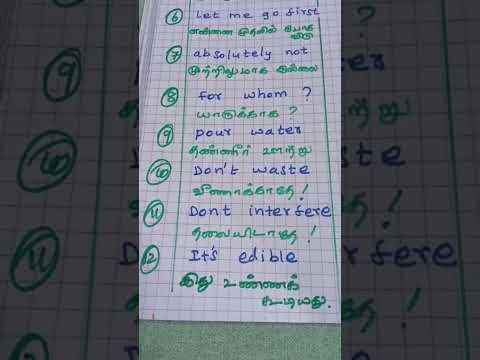 6 Let me go first
என்னை முதலில் போக விடு
7 absolutely not
முற்றிலுமாக இல்லை
8 for whom ?
யாருக்காக ?
9 pour water
தண்ணீர் ஊற்று
10 Don't waste
வீணாக்காதே !
11 Dont interfere
தலையிடாதே !
12 It's edible
இது உண்ணக்
கூடியது.